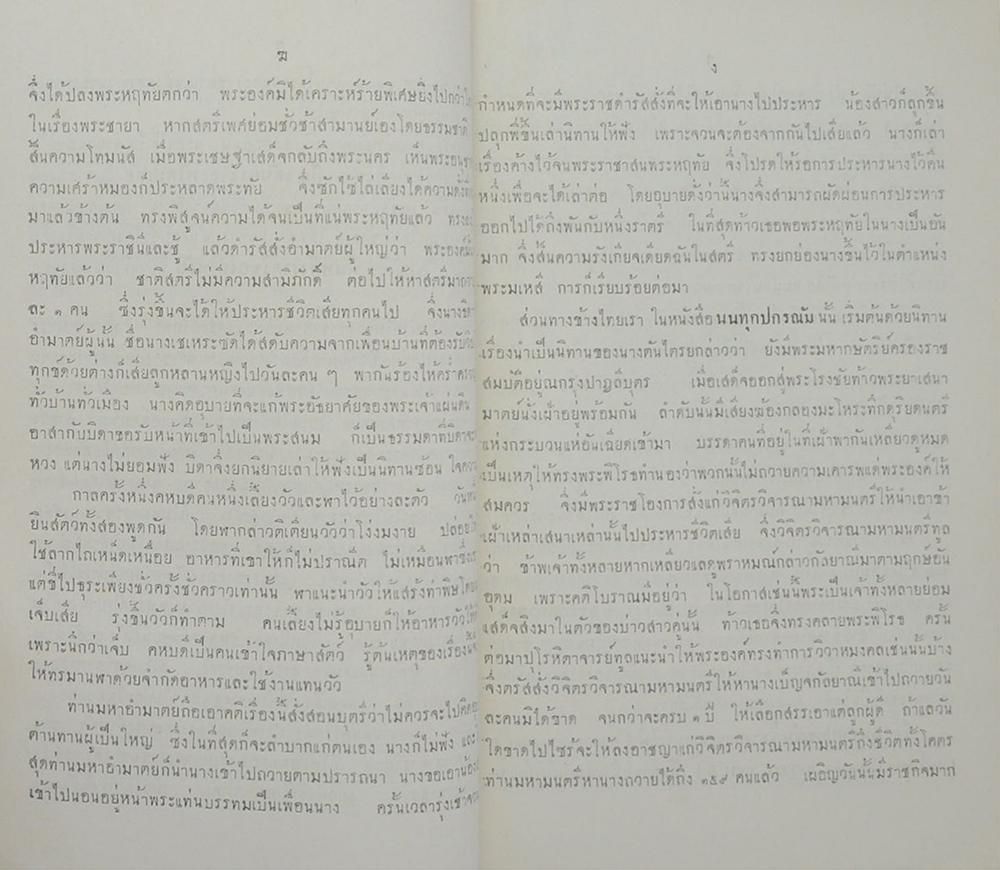 ฆ
จึ่งได้ปลงพระหฤทัยตกว่า พระองค์มิได้เคราะห์ร้ายพิเศษยิ่งไปกว่า
ในเรื่องพระชายา หากสตรีเพศย่อมชั่วช้าสามานย์เองโดยธรรมชาติ
สิ้นความโทมนัส เมื่อพระเชษฐาเสด็จกลับถึงพระนคร เห็นพระอนุชา
ความเศร้าหมองก็ประหลาดพระทัย จึ่งซักไซ้ไล่เลียงได้ความดั่ง
มาแล้วข้างต้น ทรงพิสูจน์ความได้จนเป็นที่แน่พระหฤทัยแล้ว ทรง
ประหารพระราชินีและชู้ แล้วดำรัสสั่งอำมาตย์ผู้ใหญ่ว่า พระองค์
หฤทัยแล้วว่า ชาติสตรีไม่มีความสามิภักดิ์ ต่อไปให้หาสตรีมา
ละ ๑ คน ซึ่งรุ่งขึ้นจะได้ให้ประหารชีวิตเสียทุกคนไป จึ่งนาง
อำมาตย์ผู้นั้น ชื่อนางเชเหระซัดได้สดับความจากเพื่อนบ้านที่ต้องรับ
ทุกข์ด้วยต่างก็เสียลูกหลานหญิงไปวันละคน ๆ พากันร้องไห้คร่ำครวญ
ทั่วบ้านทั่วเมือง นางคิดอุบายที่จะแก้พระอัธยาศัยของพระเจ้าแผ่นดิน
อาสากับบิดาขอรับหน้าที่เข้าไปเป็นพระสนม ก็เป็นธรรมดาที่บิดาจะ
หวง แต่นางไม่ยอมฟัง บิดาจึ่งยกนิยายเล่าให้ฟังเป็นนิทานซ้อน ใจความ
กาลครั้งหนึ่งคหบดีคนหนึ่งเลี้ยงวัวและพาไว้อย่างละตัว วันหนึ่ง
ยินสัตว์ทั้งสองพูดกัน โดยพากล่าวติเตียนวัวว่าโง่งมงาย ปล่อย
ใช้ลากไถเหน็ดเหนื่อย อาหารที่เขาให้ก็ไม่ปราณีต ไม่เหมือนพาซึ่ง
แต่ขี่ไปธุระเพียงชั่วครั้งชั่วคราวเท่านั้น พาแนะนำวัวให้แสร้งทำพิษ
เจ็บเสีย รุ่งขึ้นวัวก็ทำตาม คนเลี้ยงไม่รู้อุบายก็ให้อาหารวัว
เพราะนึกว่าเจ็บ คหบดีเป็นคนเข้าใจภาษาสัตว์ รู้ต้นเหตุของเรื่อง
ให้ทรมานพาด้วยจำกัดอาหารและใช้งานแทนวัว
ท่านมหาอำมาตย์ถือเอาคติเรื่องนี้สั่งสอนบุตรีว่าไม่ควรจะไปคิด
ต้านทานผู้เป็นใหญ่ ซึ่งในที่สุดก็จะลำบากแก่ตนเอง นางก็ไม่ฟัง และ
สุดท่านมหาอำมาตย์ก็นำนางเข้าไปถวายตามปรารถนา นางขอเอาน้อง
เข้าไปนอนอยู่หน้าพระแท่นบรรทมเป็นเพื่อนนาง ครั้นเวลารุ่งเช้า
ง
กำหนดที่จะมีพระราชดำรัสสั่งที่จะให้เอานางไปประหาร น้องสาวก็ลุกขึ้น
ปลุกพี่ขึ้นเล่านิทานให้ฟัง เพราะจวนจะต้องจากกันไปเสียแล้ว นางก็เล่า
เรื่องค้างไว้จนพระราชาสนพระหฤทัย จึ่งโปรดให้รอการประหารนางไว้คืน
หนึ่งเพื่อจะได้เล่าต่อ โดยอุบายดั่งว่านี้นางจึ่งสามารถผัดผ่อนการประหาร
ออกไปได้ถึงพันกับหนึ่งราตรี ในที่สุดท้าวเธอพอพระหฤทัยในนางเป็นอัน
มาก จึ่งสิ้นความรังเกียจเดียดฉันในสตรี ทรงยกย่องนางขึ้นไว้ในตำแหน่ง
พระมเหสี การก็เรียบร้อยต่อมา
ส่วนทางข้างไทยเรา ในหนังสือนนทุกปกรณัมนั้น เริ่มต้นด้วยนิทาน
เรื่องนำเป็นนิทานของนางตันไตรยกล่าวว่า ยังมีพระมหากษัตริย์ครองราช
สมบัติอยู่ณกรุงปาฎลีบุตร เมื่อเสด็จออกสู่พระโรงชัยท้าวพระยาเสนา
มาตย์นั่งเฝ้าอยู่พร้อมกัน ลำดับนั้นมีเสียงฆ้องกลองมะโหระทึกดุริยดนตรี
แห่งกระบวนแห่อันเฉียดเข้ามา บรรดาคนที่อยู่ในที่เฝ้าพากันเหลียวดูหมด
เป็นเหตุให้ทรงพระพิโรธทำนองว่าพวกนั้นไม่ถวายความเคารพแด่พระองค์ให้
สมควร จึ่งมีพระราชโองการสั่งแก่วิจิตรวิจารณามหามนตรีให้นำเอาข้า
เฝ้าเหล่าเสนาเหล่านั้นไปประหารชีวิตเสีย จึ่งวิจิตรวิจารณามหามนตรีทูล
ว่า ข้าพเจ้าทั้งหลายหากเหลียวแลดูพราหมณ์กล่าวกัลยาณีมาตามฤกษ์อัน
อุดม เพราะคติโบราณมีอยู่ว่า ในโอกาสเช่นนี้พระเป็นเจ้าทั้งหลายย่อม
เสด็จลิงมาในตัวของบ่าวสาวคู่นั้น ท้าวเธอจึ่งทรงคลายพระพิโรธ ครั้น
ต่อมาปุโรหิตาจารย์ทูลแนะนำให้พระองค์ทรงทำการวิวาหมงคลเช่นนั้นบ้าง
จึ่งตรัสสั่งวิจิตรวิจารณามหามนตรีให้หานางเบ็ญจกัลยาณีเข้าไปถวายวัน
ละคนมิได้ขาด จนกว่าจะครบ ๑ ปี ให้เลือกสรรเอาแต่ลูกผู้ดี ถ้าแลวัน
ใดขาดไปไซร้จะให้ลงอาชญาแก่วิจิตรวิจารณามหามนตรีถึงชีวิตทั้งโคตร
ท่านมหามนตรีหานางถวายได้ถึง ๓๕๙ คนแล้ว เผอิญวันนั้นมีราชกิจมาก